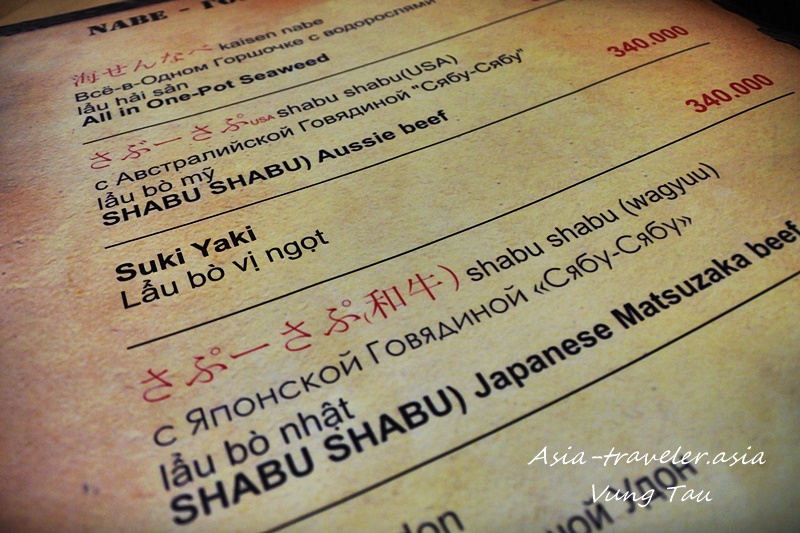 NABE - 
海せんなべ kaisen nabe
Всё-в-Одном Горшочке с водорослями
lẩu hải sản
All in One-Pot Seaweed
340.000
さぶーさぷUSA shabu shabu(USA)
с Австралийской Говядиной "Сябу-Сябу"
lẩu bò mỹ
SHABU SHABU) Aussie beef
340.000
Suki Yaki
Lẩu bò vị ngọt
さぷーさぷ(和牛) shabu shabu (wagyuu)
с Японской Говядиной «Сябу-Сябу»
lẩu bò nhật
SHABU SHABU) Japanese Matsuzaka beef
Asia-traveler.asia
Vung Tau